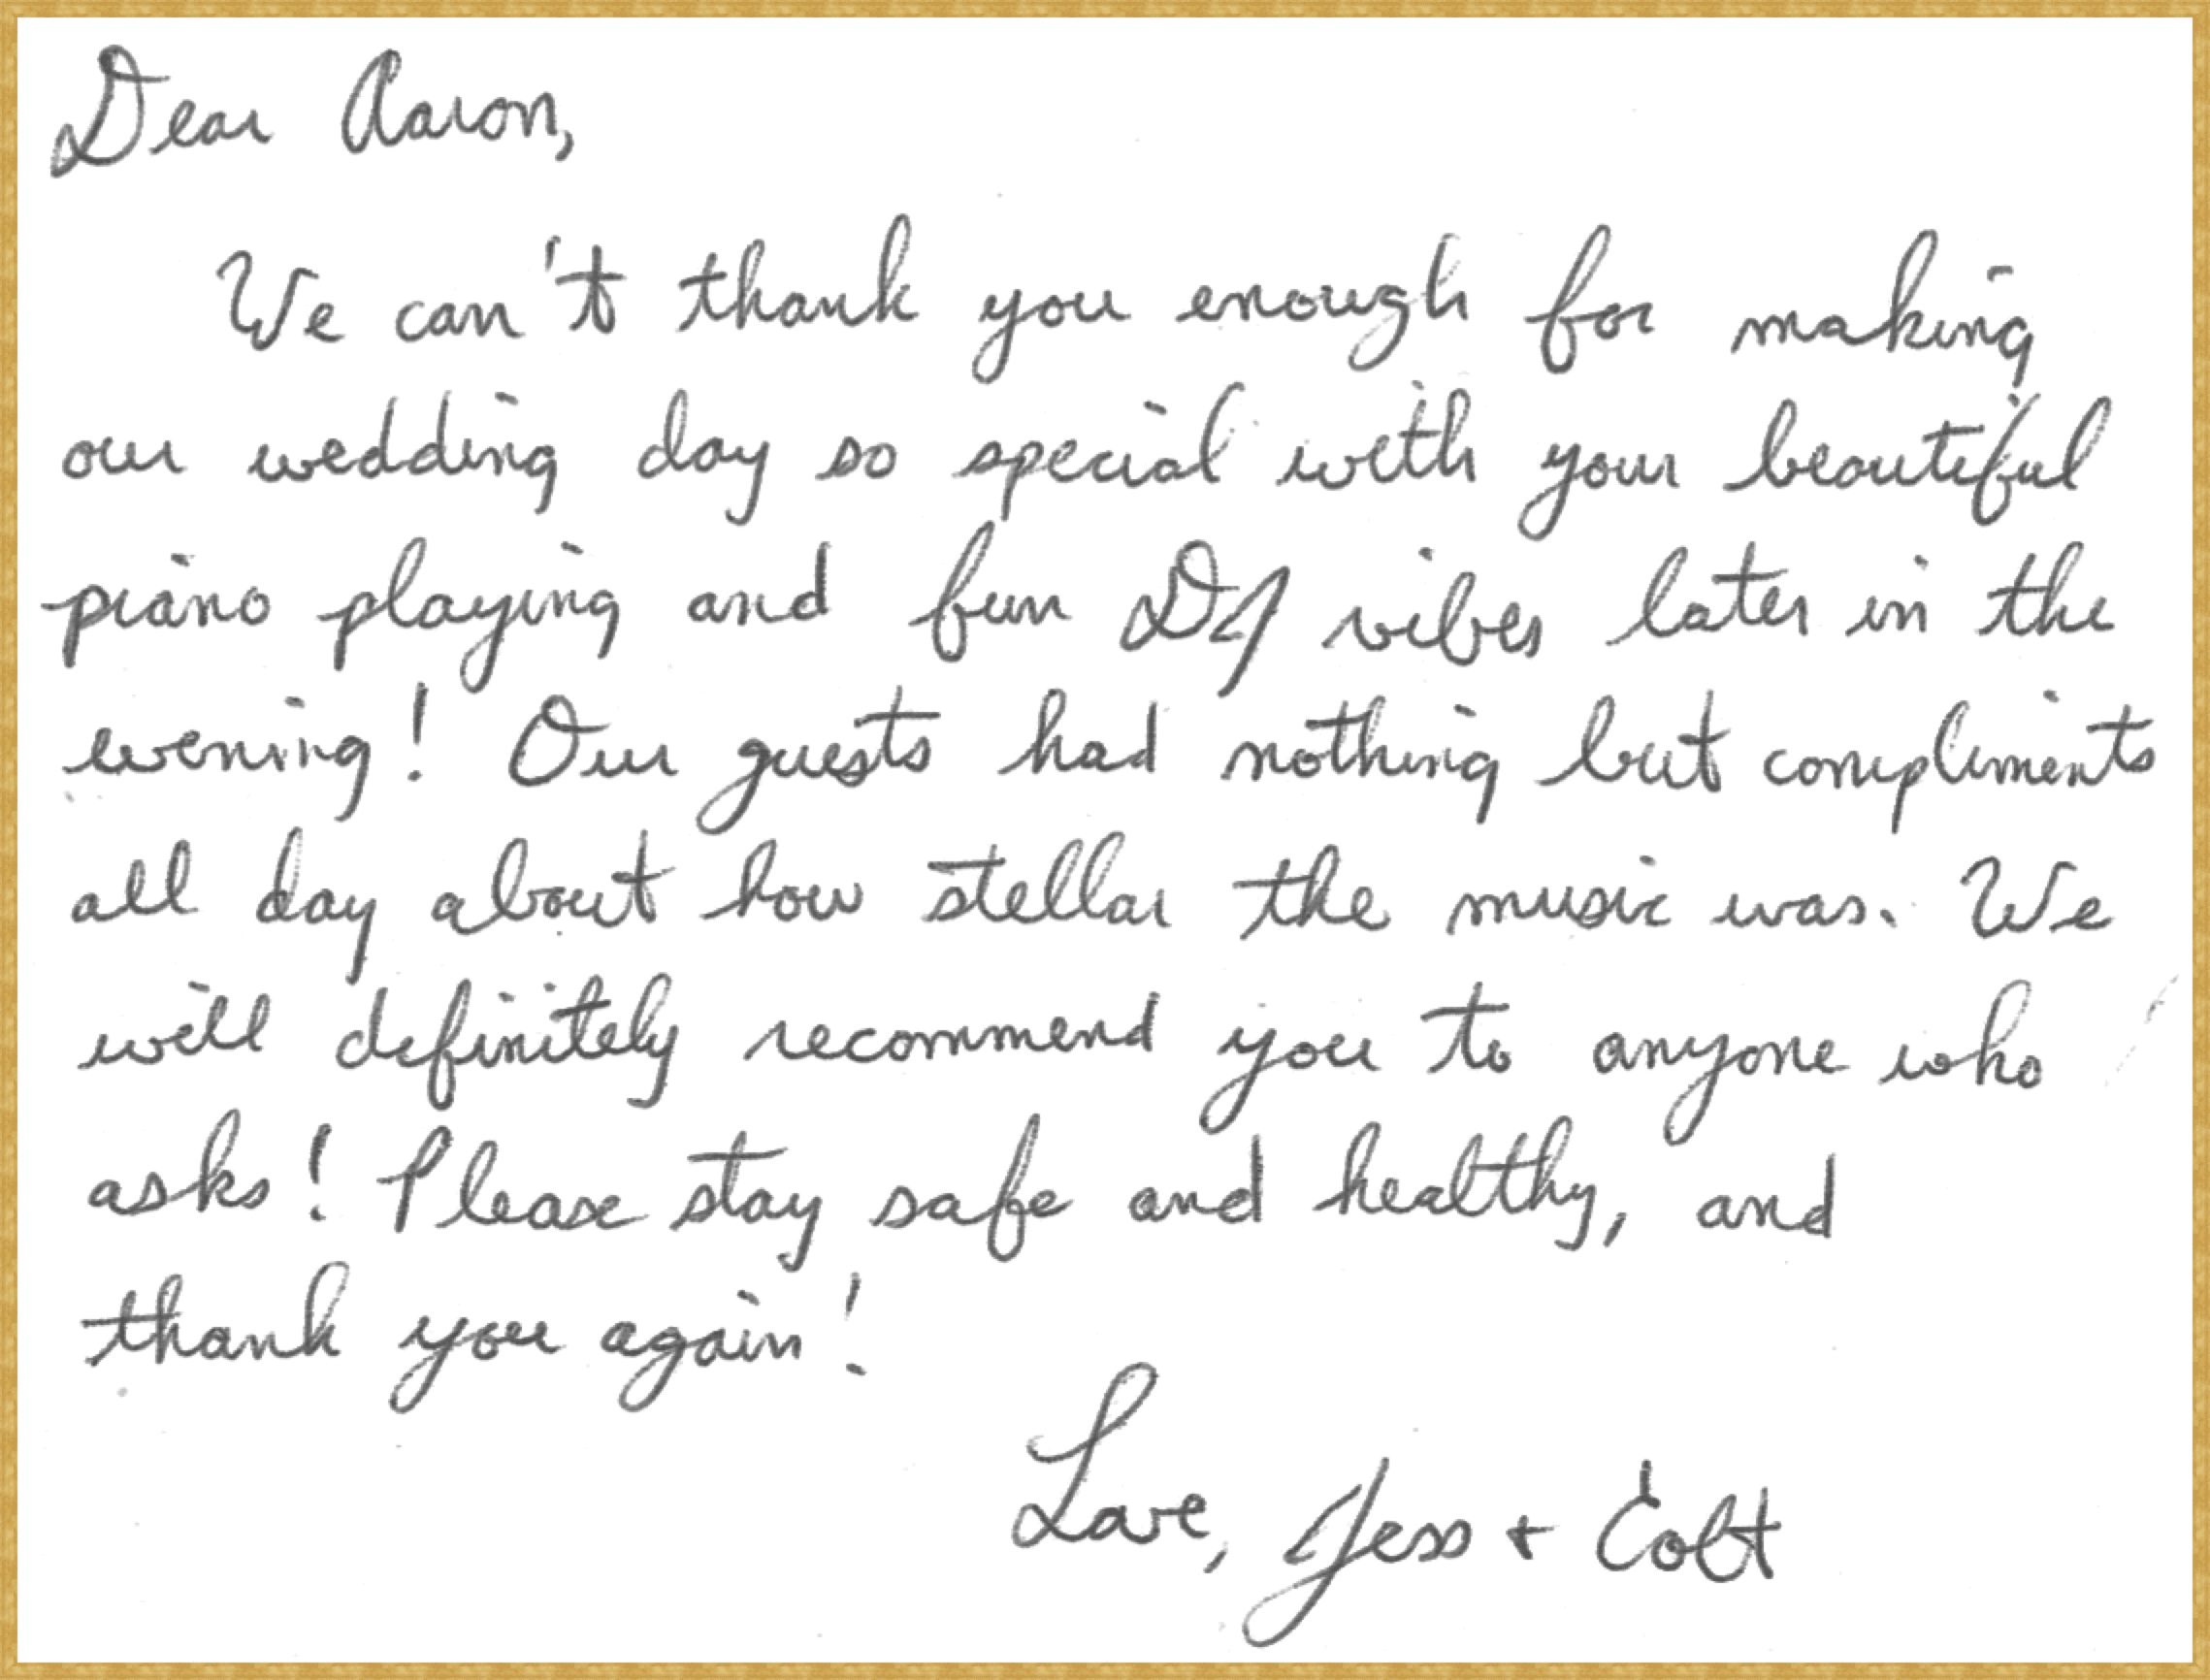 Dear Aaron,
We can't thank you enough for making
our wedding day so special with your beautiful
piano playing and fun DJ vibes later in the
evening! Our guests had nothing but compliments
all day about how stellar the music was. We
will definitely recommend you to anyone who
asks! Please stay safe and healthy, and
thank you again!
Love, Jess + Colt